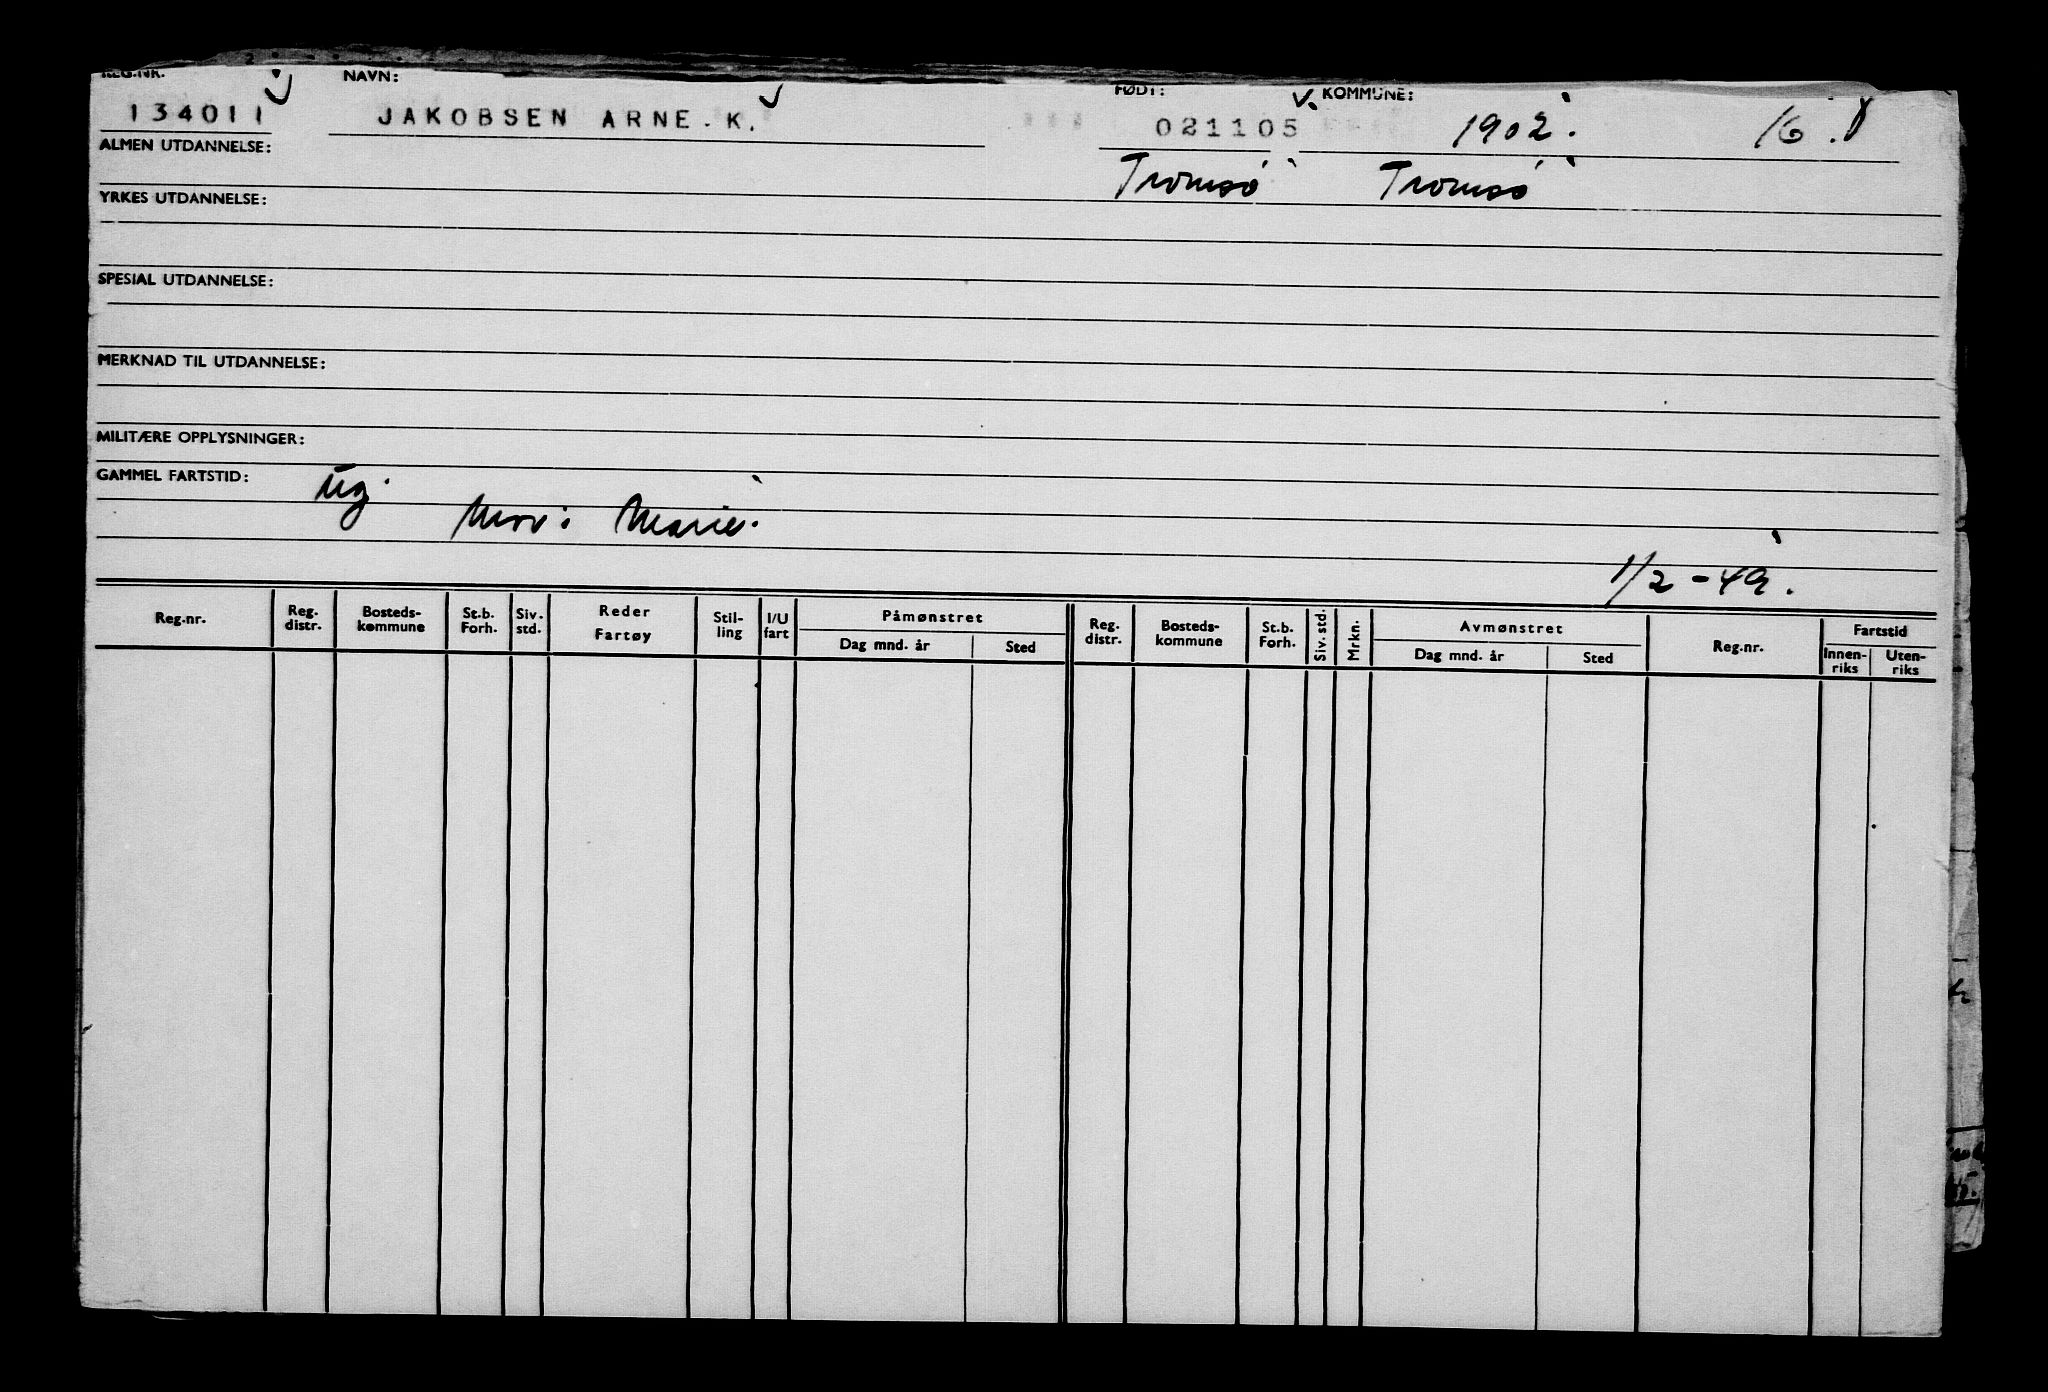 REG.NR. NAVN: FØDT: KOMMUNE:
134011 JAKOBSEN ARNE.K. 021105 1902. 16.
ALMEN UTDANNELSE: Tromsø Tromsø
YRKES UTDANNELSE:
SPESIAL UTDANNELSE:
MERKNAD TIL UTDANNELSE:
MILITÆRE OPPLYSNINGER:
GAMMEL FARTSTID: ug.
Mor: Marie.
1/2-49.
Reg.nr. Reg. distr. Bosteds- kommune St.b. Forh. Siv. std. Reder Fartøy Stil- ling I/U fart Påmønstret Dag mnd. år Sted Reg. distr. Bosteds- kommune St.b. Forh. Siv. std. Mrkn. Avmønstret Dag mnd. år Sted Reg.nr. Fartstid Innen- riks Uten- riks